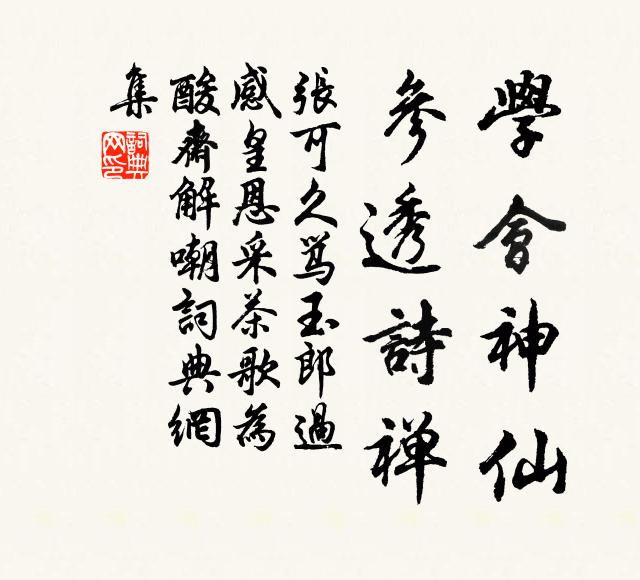 學會神仙
參透詩禪
張可久罵玉郎過
感皇恩采茶歌為
酸齋解嘲詞典網
集
詞典
网印